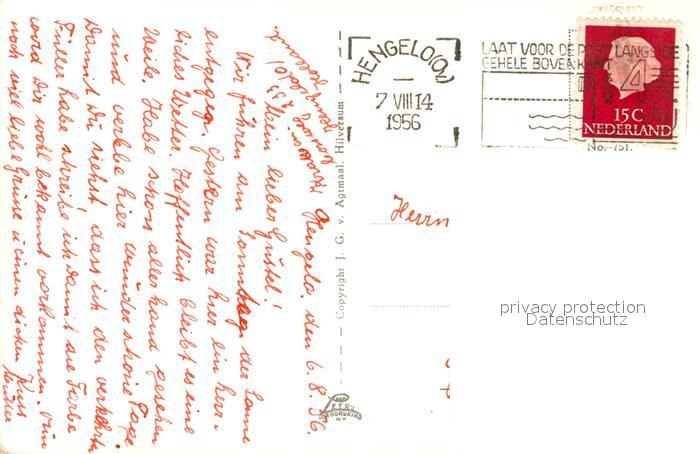 Hengelo, den 6.8.56.
Mein lieber Gustel!
Wir fuhren am Sonntag der Sonne
entgegen. Gestern war hier ein herr-
liches Wetter. Hoffentlich bleibt es eine
Weile. Habe schon allerhand gesehen
und verlebe hier wunderschöne Tage.
Damit Du siehst, dass ich den verkehrten
Füller habe schreibe ich damit die Farbe
wird Dir wohl bekannt vorkommen. Nun
noch viel liebe Grüsse u einen dicken Kuss
Copyright J. G. v. Agtmaal, Hilversum
HENGELO(O)
7 VIII 14
1956
LAAT VOOR DE POST LANGS DE
GEHELE BOVENKANT
15 C
NEDERLAND
No. 151.
Herrn
privacy protection
Datenschutz